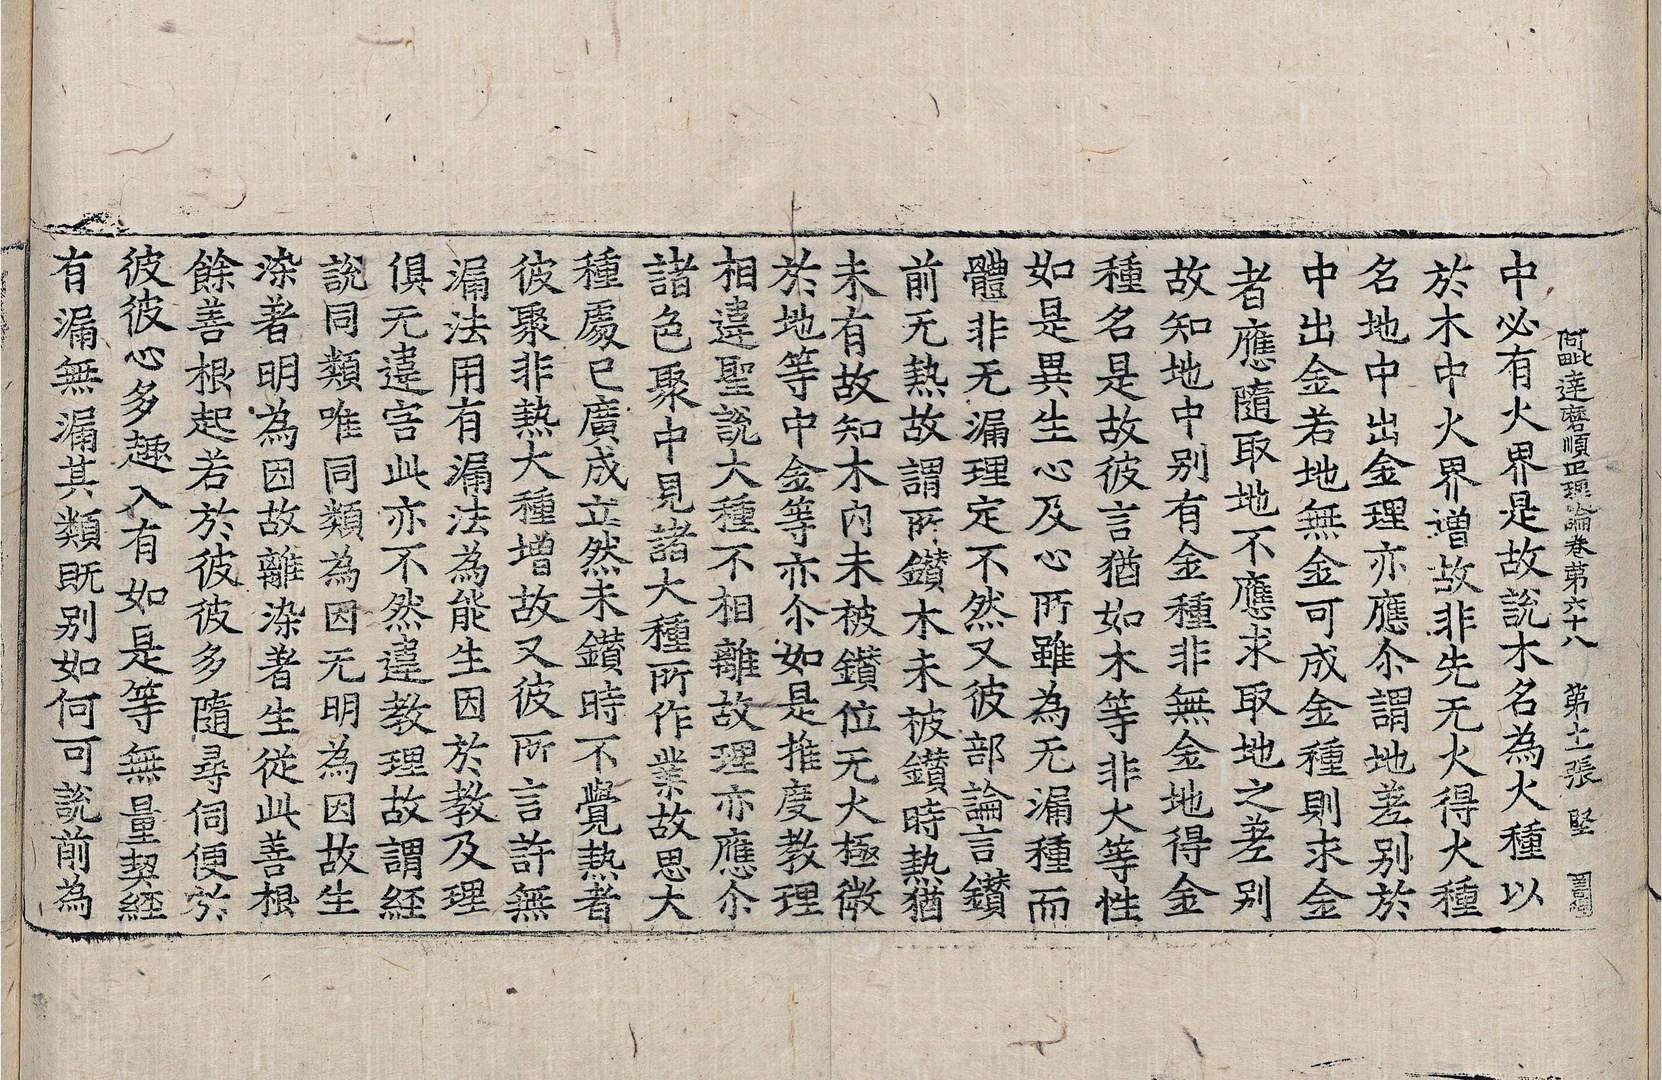 阿毗達磨順正理論卷第六十八 第十一張 堅
中必有火界是故說木名為火種以
於木中火界增故非先无火得火種
名地中出金理亦應尒謂地差別於
中出金若地無金可成金種則求金
者應隨取地不應求取地之差別
故知地中別有金種非無金地得金
種名是故彼言猶如木等非大等性
如是異生心及心所雖為无漏種而
體非无漏理定不然又彼部論言鑚
前无熱故謂所鑚木未被鑚時熱猶
未有故知木內未被鑚位无火極微
於地等中金等亦尒如是推度教理
相違聖說大種不相離故理亦應尒
諸色聚中見諸大種所作業故思大
種處已廣成立然未鑚時不覺熱者
彼聚非熱大種增故又彼所言許無
漏法用有漏法為能生因於教及理
俱无違害此亦不然違教理故謂経
說同類唯同類為因无明為因故生
染著明為因故離染著生從此善根
餘善根起若於彼彼多隨尋伺便於
彼彼心多趣入有如是等無量契経
有漏無漏其類既別如何可說前為